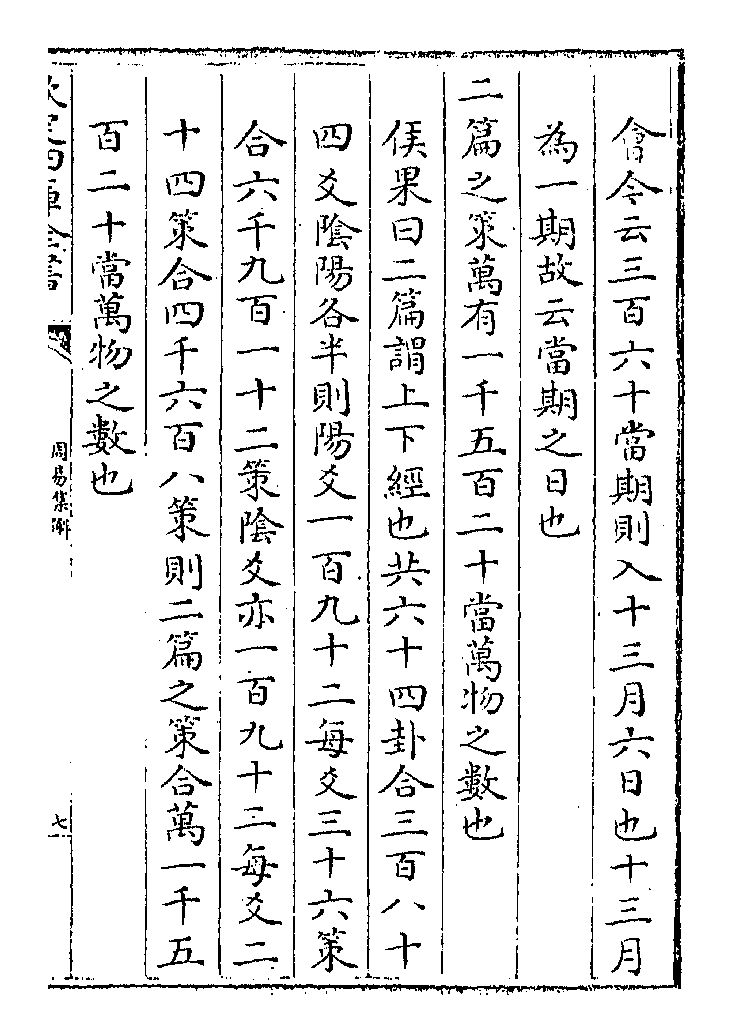 會今云三百六十當期則入十三月六日也十三月
為一期故云當期之日也
二篇之策萬有一千五百二十當萬物之數也
侯果曰二篇謂上下經也共六十四卦合三百八十
四爻陰陽各半則陽爻一百九十二每爻三十六策
合六千九百一十二策陰爻亦一百九十二每爻二
十四策合四千六百八策則二篇之策合萬一千五
百二十當萬物之數也
欽定四庫全書
周易集解
七